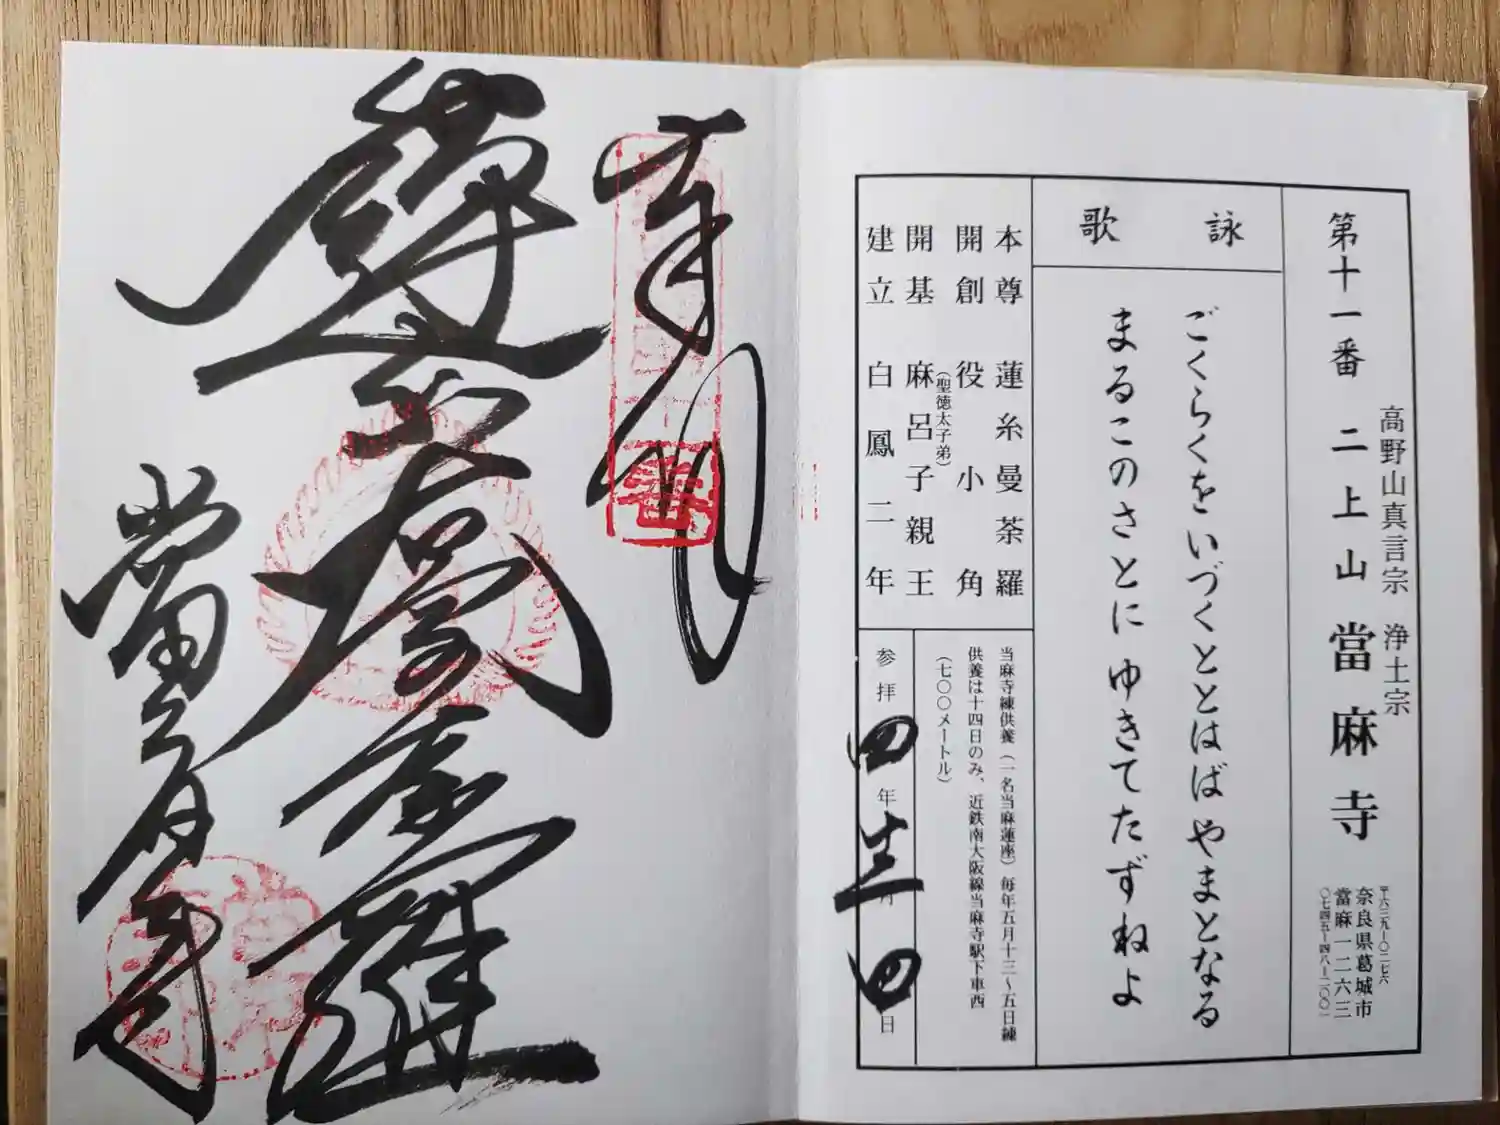 高野山真言宗 浄土宗
第十一番 二上山 當麻寺
〒六三九ー〇二七六
奈良県葛城市
當麻一二六三
〇七四五ー四八ー二〇〇一
詠歌
ごくらくをいづくととはばやまとなる
まるこのさとにゆきてたずねよ
本尊 蓮糸曼荼羅
開創 役小角
(聖徳太子弟)
開基 麻呂子親王
建立 白鳳二年
当麻寺練供養(一名当麻蓮座)毎年五月十三〜五日練
供養は十四日のみ、近鉄南大阪線当麻寺駅下車西
(七〇〇メートル)
参拝 四年 月 日
奉拝
蓮糸曼荼羅
當麻寺